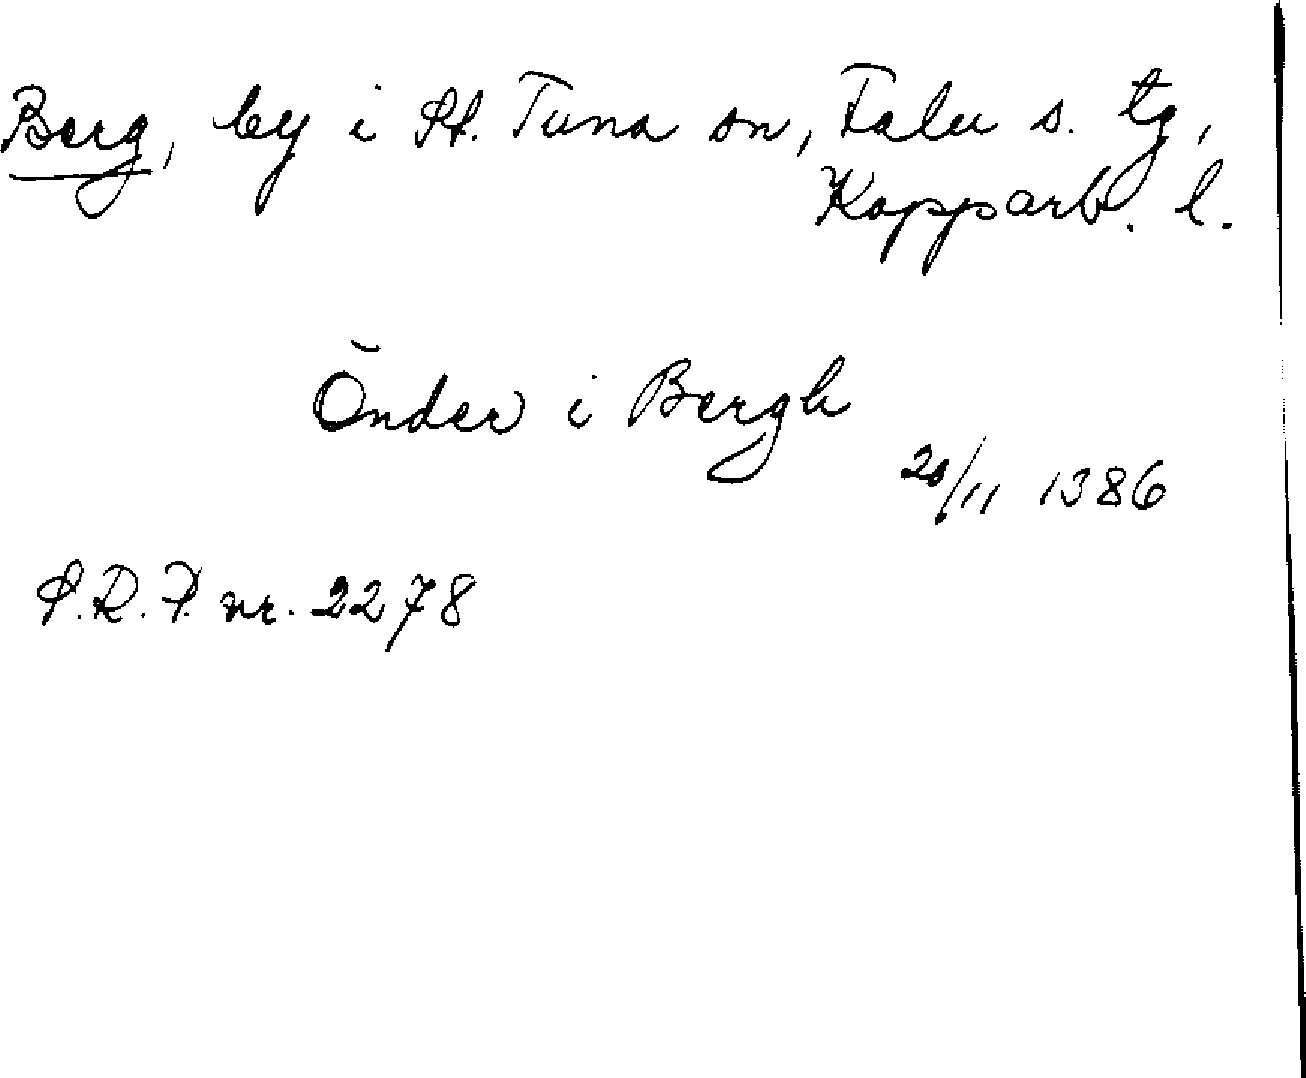 Berg, by i St. Tuna sn, Falu s. tg,
Kopparb. l.
Õnder i Bergh
20/11 1386
S.R.P. nr. 2278